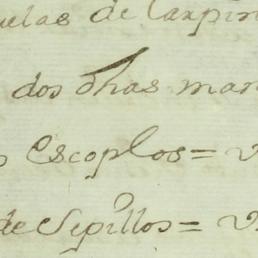 uelas de Carpin
dos dhas man
s Escoplos = v
de Sepillos = v